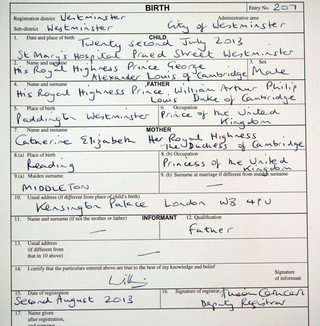 BIRTH
Entry No. 207
Registration district Westminster
Administrative area
Sub-district Westminster
City of Westminster
CHILD
1. Date and place of birth
Twenty second July 2013
St Mary's Hospital Praed Street Westminster
2. Name and surname
3. Sex
His Royal Highness Prince George
Alexander Louis of Cambridge
Male
FATHER
4. Name and surname
His Royal Highness Prince William Arthur Philip
Louis Duke of Cambridge
5. Place of birth
6. Occupation
Paddington Westminster
Prince of the United
Kingdom
MOTHER
7. Name and surname
Catherine Elizabeth Her Royal Highness
The Duchess of Cambridge
8.(a) Place of birth
8.(b) Occupation
Reading
Princess of the United
Kingdom
9.(a) Maiden surname
9.(b) Surname at marriage if different from maiden surname
MIDDLETON
—
10. Usual address (if different from place of child's birth)
Kensington Palace London W8 4PU
INFORMANT
11. Name and surname (if not the mother or father)
12. Qualification
—
Father
13. Usual address
(if different from
that in 10 above)
—
14. I certify that the particulars entered above are true to the best of my knowledge and belief
Signature
of informant
15. Date of registration
16. Signature of registrar
Second August 2013
Deputy Registrar
17. Name given
after registration,
and surname